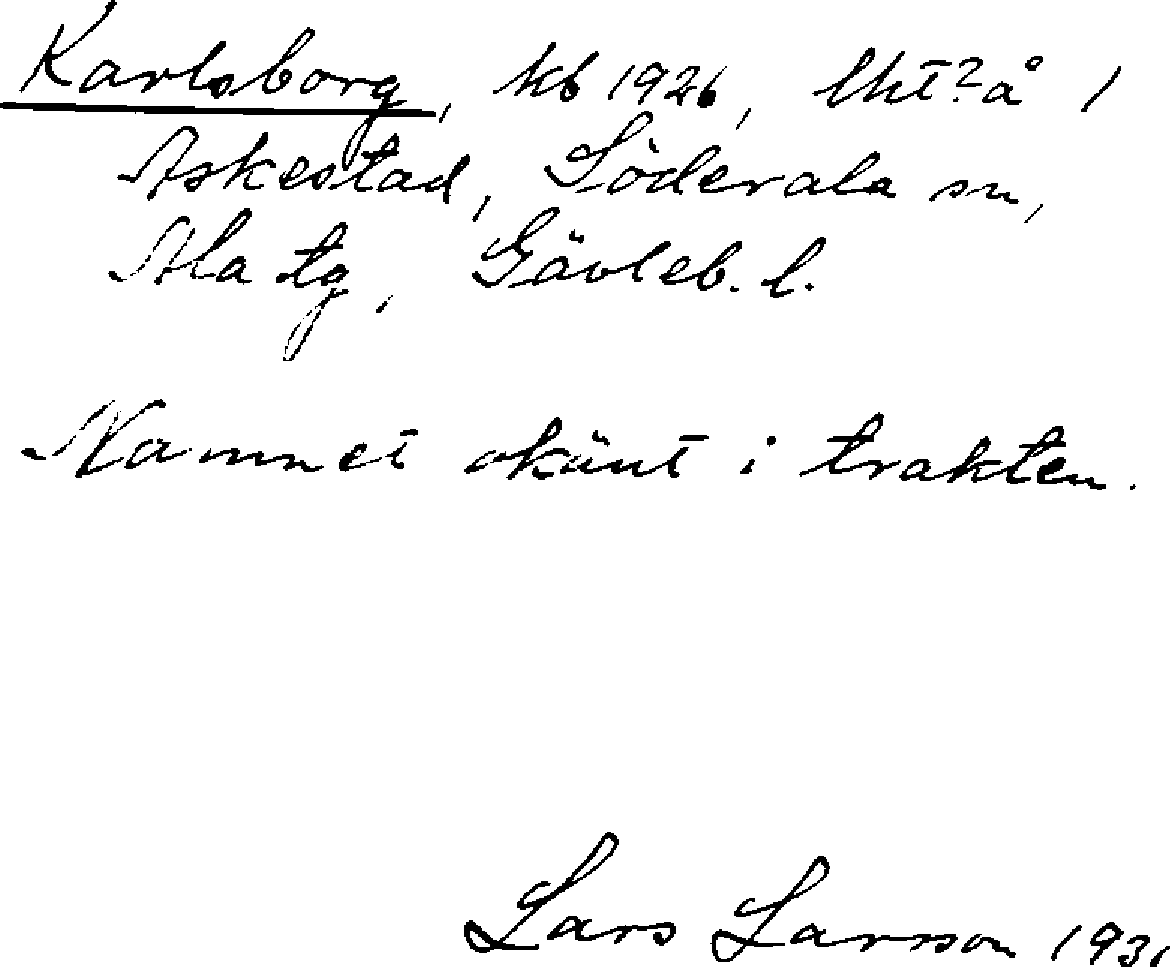 Karlsborg, kb 1926, lht? å 1
Askestad, Söderala sn,
Ala tg, Gävleb. l.
Namnet okänt i trakten.
Lars Larsson 1931